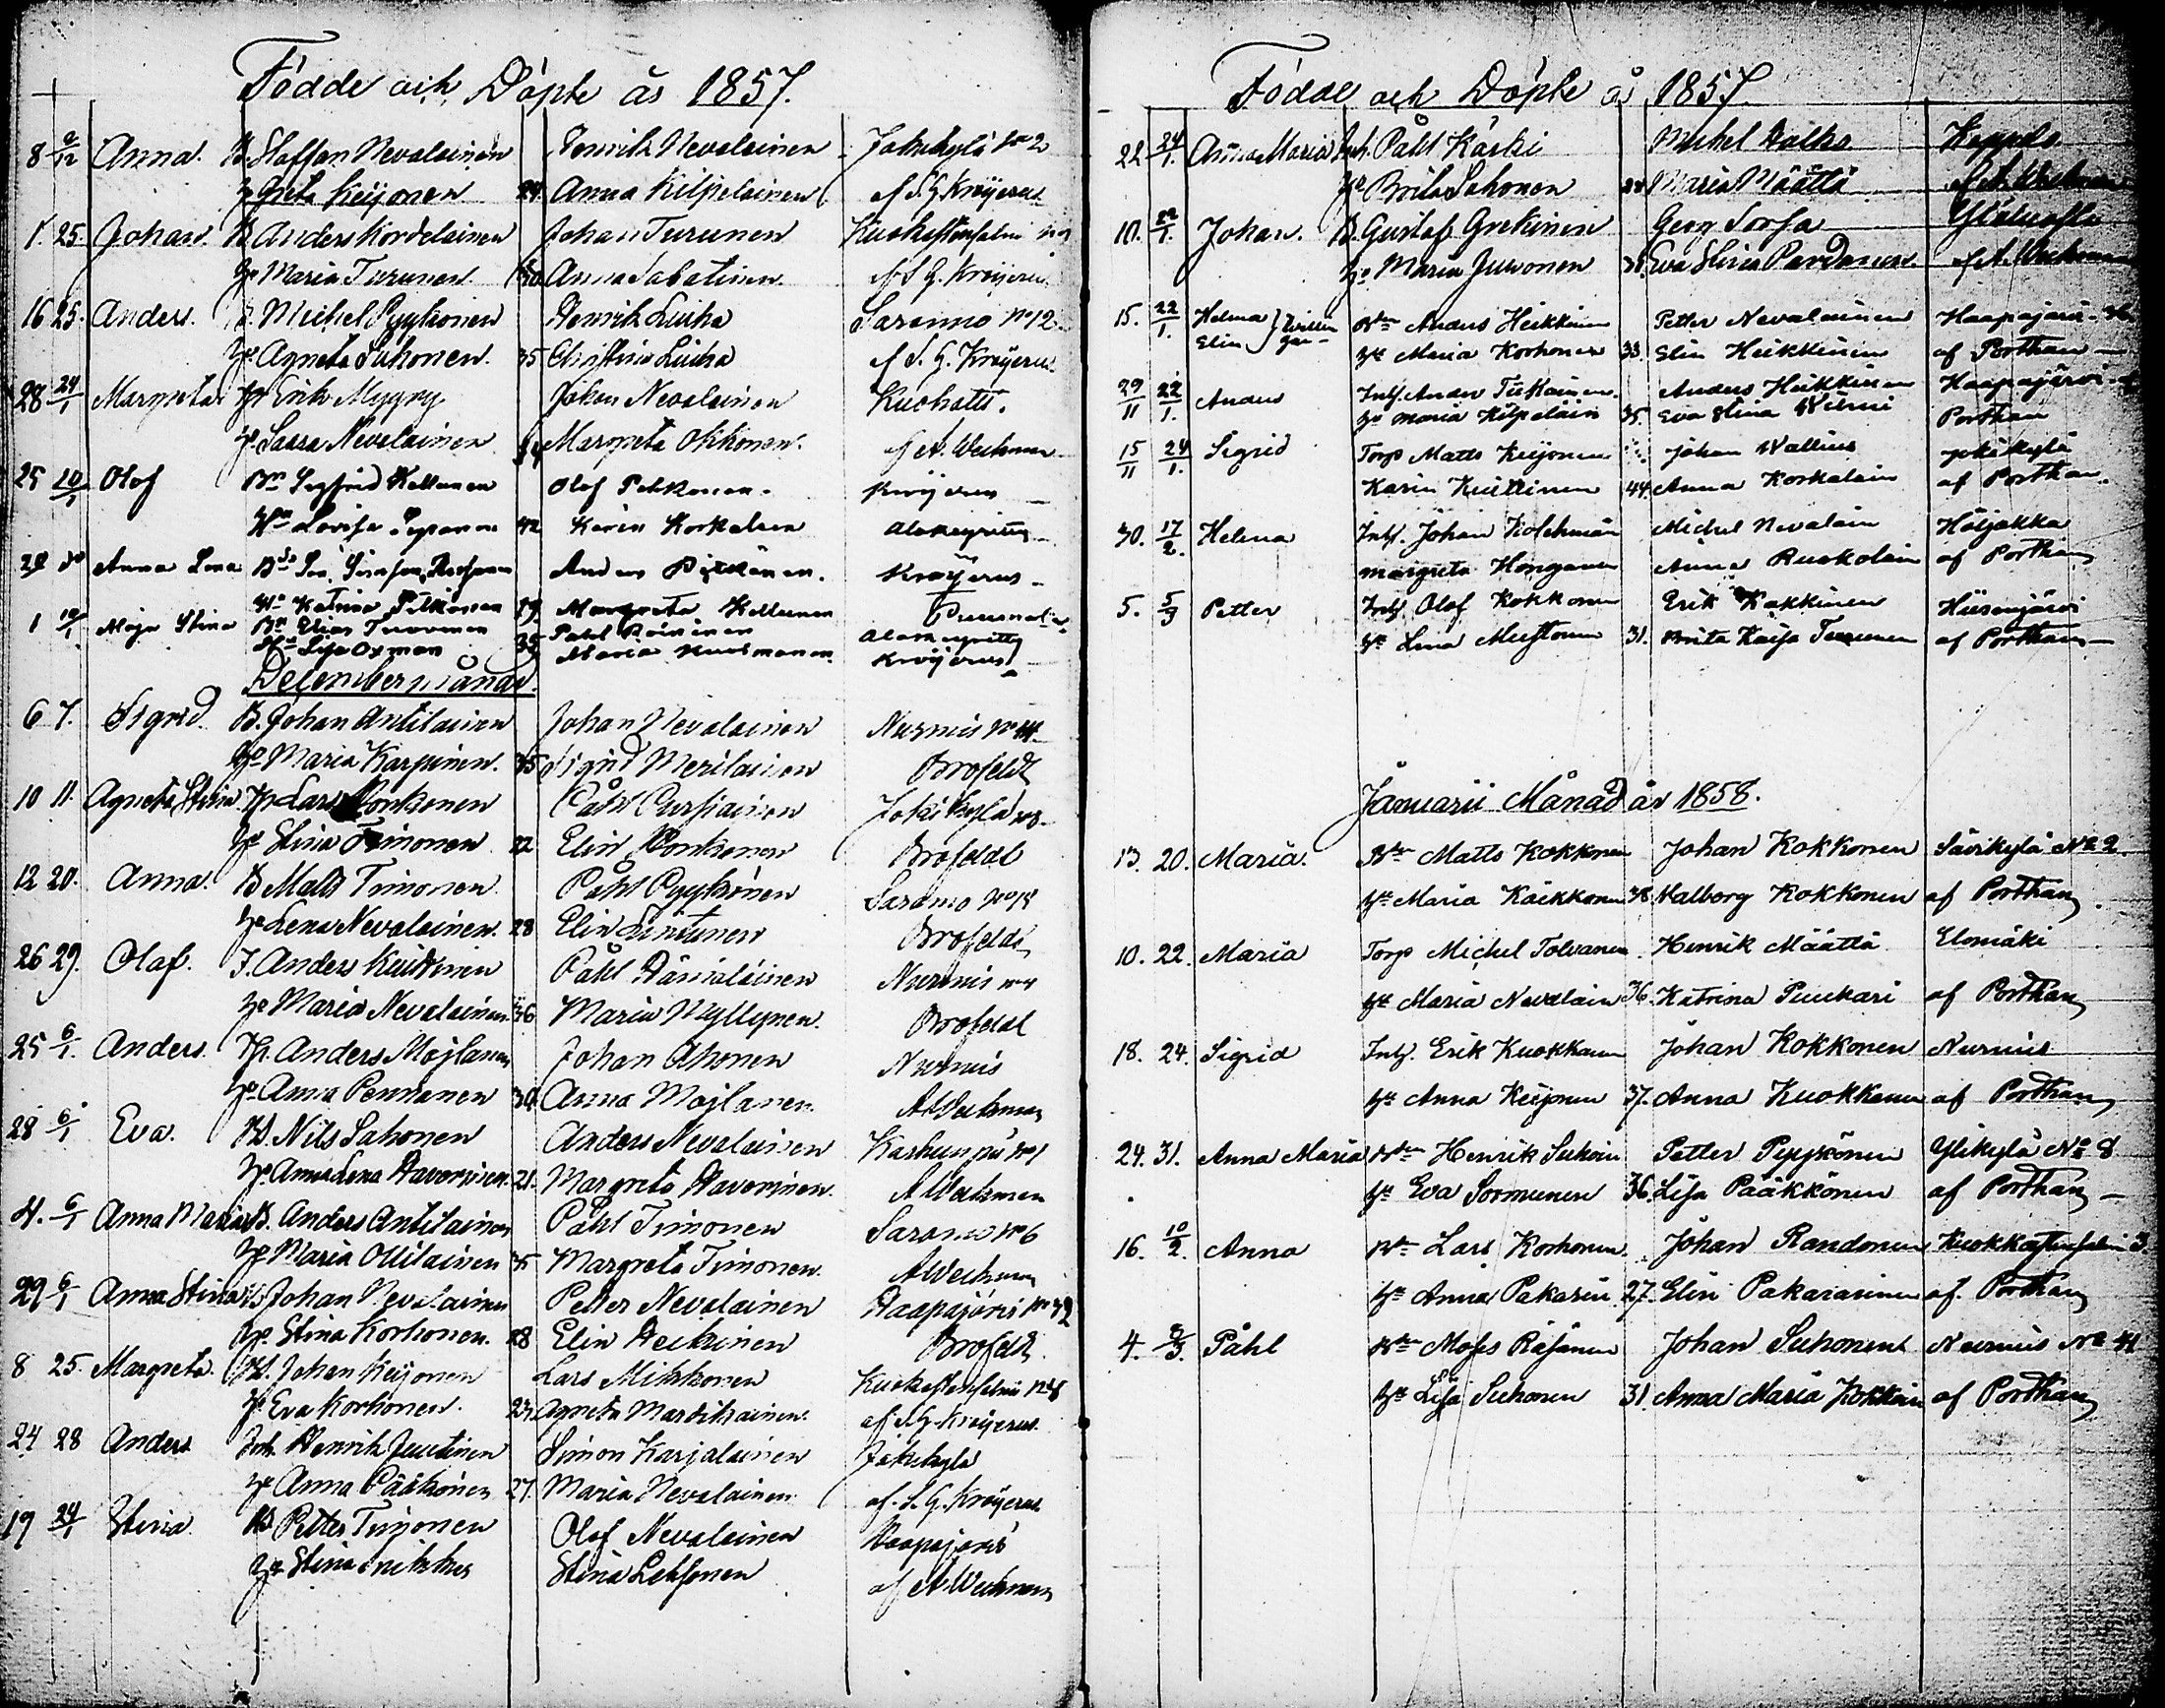 Födde och Döpte år 1857.
8 9/12 Anna. B. Staffan Nevalainen Henrik Nevalainen Jokikylä No 2
Greta Keijonen 24. Anna Kilpelainen af S. G. Krøyerus
1. 25. Johan. B. Anders Kordelainen Johan Turunen
Maria Turunen Anna Sabatinen af S. G. Krøyerus
16 25. Anders. B. Michel Pyykönen Henrik Liuha Saramo No 12
Agneta Suhonen. 35 Christina Liuha af S. G. Krøyerus
28 24/1 Margreta Erik Myyry Johan Nevalainen Kuohatti.
Saara Nevalainen Margreta Okkonen. af A. Weckman
25 10/1 Olof Sigfrid Kettunen Olof Pitkänen. Krøyerus
Lovisa 42 Karin Korkalain
Anna Lena Anders Pitkänen. Krøyerus
Katrina Pitkänen 39. Margreta Kettunen
1 Maja Stina Bn Elias Tuovinen Påhl Räisinen
Lisa Oxman Maria Krøyerus
Decembermånad.
6 7. Sigrid B. Johan Antilainen Johan Nevalainen Nurmis No 44
Maria Karpinen. 35 Sigrid Merilainen Brofeldt
10 11. Agneta Stina Lars Ronkonen Påhl Pursiainen Jokikylä No 3
Stina Timonen 22 Elin Ronkonen Brofeldt
12 20. Anna. B Matts Timonen Påhl Pyykönen Saramo
Lena Nevalainen. 28 Elin Lintunen Brofeldt
26 29. Olaf. T. Anders Kuittinen Påhl Hämäläinen Nurmis
Maria Nevalainen 36 Maria Myllynen. Brofeldt
25 6/1. Anders. Anders Mojlanen Johan Ahonen Nurmis
Anna Pennanen 30. Anna Mojlanen A Weckman
28 6/1 Eva. B. Nils Sahonen Anders Nevalainen Karhunpää No 1
Anna Lena Havorinen. 21. Margreta Havorinen. A Weckman
4. 6/1 Anna Maria B. Anders Antilainen Påhl Timonen Saramo No 6
Maria Ollilainen 35 Margreta Timonen. A Weckman
29 6/1 Anna Stina B Johan Nevalainen Petter Nevalainen Haapajärvi
Stina Korhonen. 28 Elin Heikinen Brofeldt.
8 25. Margreta B. Johan Keijonen Lars Mikkonen
Eva Korhonen. 23. Agneta Martikainen. af S. G. Krøyerus.
24 28 Anders Inh. Henrik Juutinen Simon Karjalainen Jokikylä
Anna Pääkönen 27. Maria Nevalainen af. S. G. Krøyerus
19 24/1 Stina B Petter Timonen Olof Nevalainen Haapajärvi
Stina Stina Lehtonen af A. Weckman
Födde och Döpte år 1857.
22 24/1. Anna Maria Inh. Påhl Kärki Michel Halko
Brita Sahonen Maria Määttä af A. Weckman
10. 22/1. Johan. B. Gustaf Grekinen Georg Sorsa
Maria Juwonen 38. Eva Stina Pardanen af A. Weckman
15. 22/1. Helena Elin } Anders Heikkinen Petter Nevalainen Haapajärvi
Maria Korhonen 33. Elin Heikkinen af Porthan
29/11 22/1. Anders Inh. Anders Tiikainen. Anders Heikkinen Haapajärvi
Maria Kilpelain 35. Eva Stina Porthan
15/11 24/1. Sigrid Torp Matts Keijonen Johan Wallius Jokikylä
Karin Kuittinen 44. Anna Korkalain af Porthan.
30. 17/2. Helena Inh. Johan Kolehmain Michel Nevalain Höljäkkä
Margreta Honganen Anna Ruokolain af Porthan
5. 5/3 Petter Inh. Olof Kokkonen Erik Kakkinen Hiisenjärvi
Lena Mustonen 31. Brita Kaisa Turunen af Porthan
Januarii Månad år 1858.
13. 20. Maria. Matts Kokkonen Johan Kokkonen Savikylä No 2.
Maria Käikkonen 38. Walborg Kokkonen af Porthan.
10. 22. Maria Torp Michel Tolvanen. Henrik Määttä Elomäki
Maria Nevalain 36. Katrina Puukari af Porthan
18. 24. Sigrid Inh. Erik Kuokkanen Johan Kokkonen Nurmis
Anna Keijonen 37. Anna Kuokkanen af Porthan
24. 31. Anna Maria Henrik Suhoin Petter Pyykönen Ylikylä No 8
Eva Sormunen 36. Lisa Pääkkönen af Porthan
16. 10/2. Anna Lars Korhonen. Johan Randonen Kuokkastensalmi 3.
Anna Pakarin 27. Elin Pakarainen af. Porthan
4. 2/3. Påhl Moses Räsänen Johan Suhonen Nurmis No 41
Lisa Suhonen 31. Anna Maria Kokkoin af Porthan